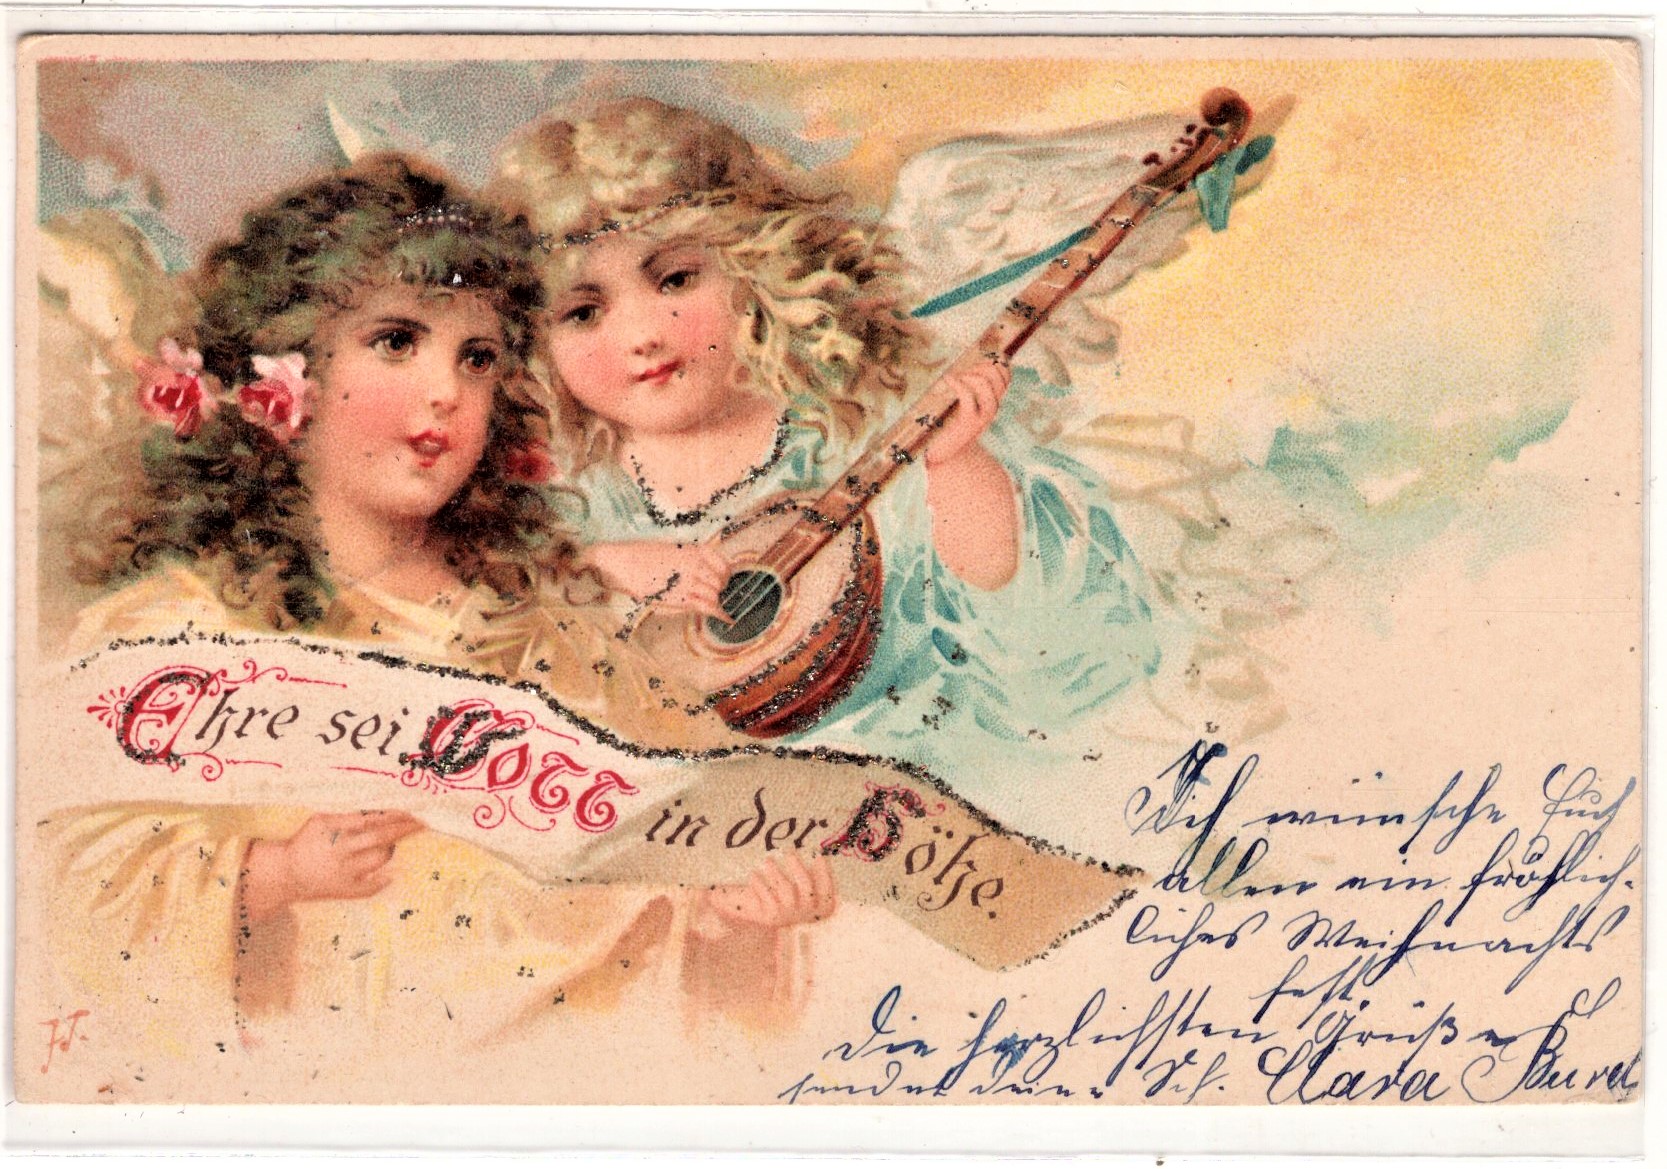 Ehre sei Gott in der Höhe.
Ich wünsche Euch
allen ein fröhlich-
liches Weihnachts
fest.
Die herzlichsten Grüße
sendet deine Sch. Clara